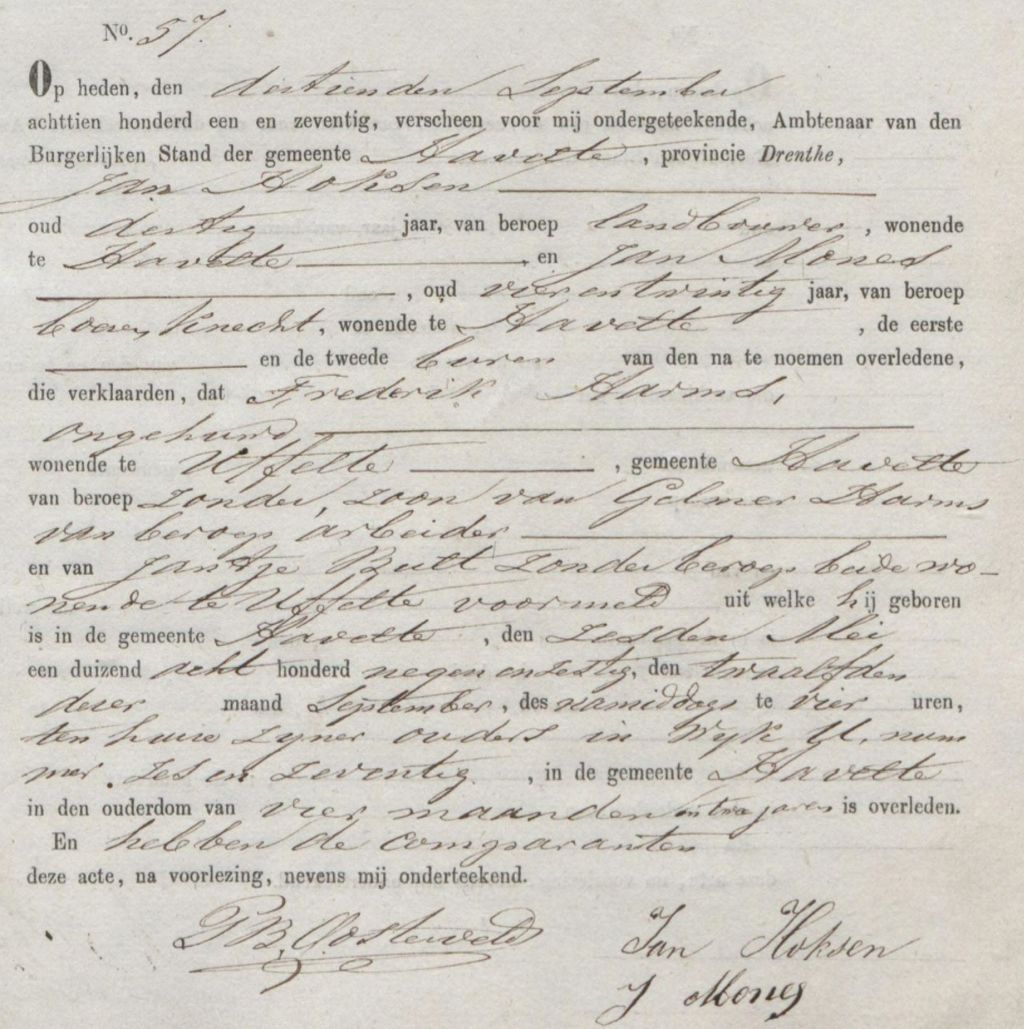 No. 57.
Op heden, den dertienden September
achttien honderd een en zeventig, verscheen voor mij ondergeteekende, Ambtenaar van den
Burgerlijken Stand der gemeente Havelte, provincie Drenthe,
Jan Hoksen
oud dertig jaar, van beroep landbouwer, wonende
te Havelte en Jan Mones
, oud vier en twintig jaar, van beroep
boeren knecht, wonende te Havelte, de eerste
en de tweede buren van den na te noemen overledene,
die verklaarden, dat Frederik Harms,
ongehuwd
wonende te Uffelte, gemeente Havelte
van beroep zonder, zoon van Gelmer Harms
van beroep arbeider
en van Jantje Butt zonder beroep beide wo-
nende te Uffelte voormeld uit welke hij geboren
is in de gemeente Havelte, den zesden Mei
een duizend acht honderd negen en zestig, den twaalfden
dezer maand September, des namiddags te vier uren,
ten huize zyner ouders in Wyk U. num
mer zes en zeventig, in de gemeente Havelte
in den ouderdom van vier maanden en twee jaren is overleden.
En hebben de comparanten
deze acte, na voorlezing, nevens mij onderteekend.
PB. Oosterveld Jan Hoksen
J Mones